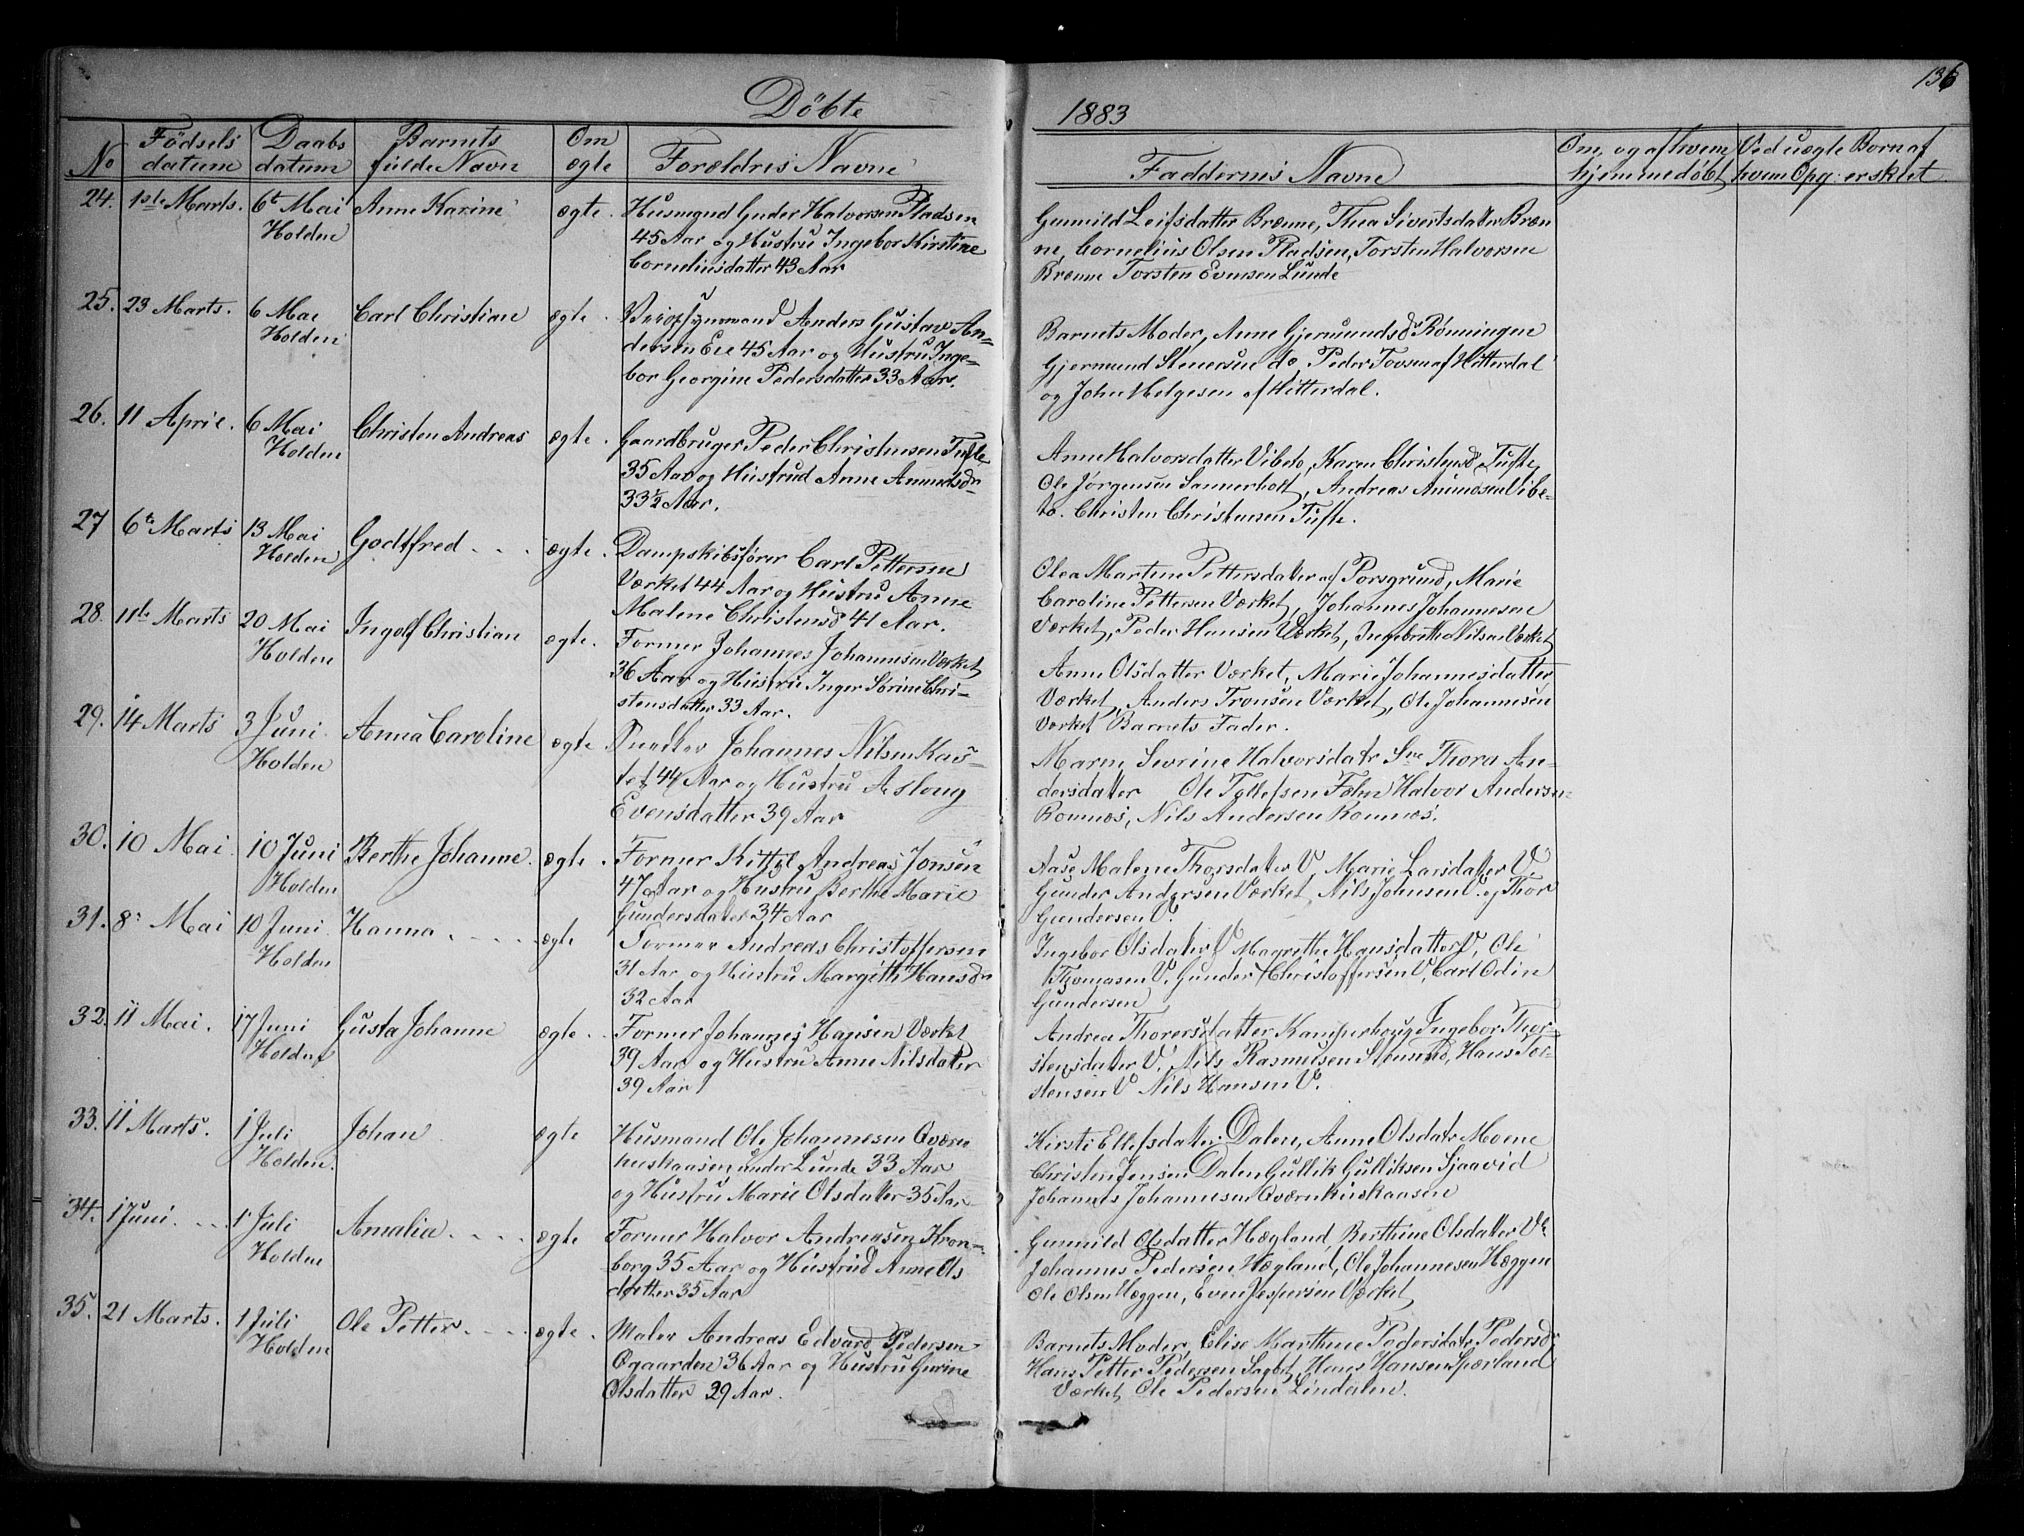 136
Döbte 1883
No
Födsels datum
Daabs datum
Barnets fulde Navn
Om ægte
Forældres Navne
Faddernes Navne
Om, og af hvem hjemmedøbt
Ved uægte Born af hvem Opg: er sktet
24. 1ste Marts. 6t Mai Holden Anne Karine ægte.
Husmand Guder Halvorsen Pladsen
45 Aar og Hustru Ingebor Kirstine
Corneliusdatter 43 Aar
Gunnild Leifsdatter Brenne, Thea Sivertsdatter Bren
ne, Cornelius Olsen Pladsen, Torsten Halvorsen
Brenne Torsten Evensen Lunde
25. 23 Marts. 6 Mai Holden Carl Christian ægte.
Anders Gustav An=
dersen Eie 45 Aar og Hustru Inge=
bor Georgine Pedersdatter 33 Aar.
Barnets Moder, Anne Gjermundsd Rønningen
Gjermund Stenersen do, Peder Tovsen af Hitterdal
og John Helgesen af Hitterdal.
26. 11 April. 6 Mai Holden Christen Andreas ægte.
Gaardbruger Peder Christensen Tufte
35 Aar og Hustrud Anne Amundsdr
33½ Aar.
Anne Halvorsdatter Vibeto, Karen Christensd Tufte,
Ole Jørgensen Sannerholt, Andreas Vibe=
to. Christen Christensen Tufte.
27 6te Marts 13 Mai Holden Godtfred ægte.
Dampskibsfører Carl Pettersen
Værket 44 Aar og Hustru Anne
Malene Christensd 41 Aar.
Olea Martine Pettersdatter af Porsgrund, Marie
Caroline Pettersen Værket, Johannes Johannesen
Værket, Peder Hansen Værket, Ingebrette Nilsen Værket
28. 11te Marts 20 Mai Holden Ingolf Christian ægte.
Former Johannes Johannesen Værket
36 Aar og Hustru Inger Sørine Chri-
stensdatter 33 Aar.
Anne Olsdatter Værket, Marie Johannesdatter
Værket, Anders Tronsen Værket, Ole Johannesen
Værket Barnets Fader.
29. 14 Marts 3 Juni Holden Anna Caroline ægte
Johannes Nilsen Kas=
tet 44 Aar og Hustru Asloug
Evensdatter 39 Aar
Maren Severine Halvorsdatr Thora An=
dersdatter Ole Tollefsen Halvor Andersen
Romnæs, Nils Andersen Romnæs.
30. 10 Mai 10 Juni Holden Berthe Johanne. ægte.
Former Kittel Andreas Jonsen
47 Aar og Hustru Berthe Marie
Gundersdater 34 Aar
Aase Malene Thorsdater V, Marie Larsdatter V
Gunder Andersen Værket, Nils Johnsen V. og Thor
Gundersen V.
31. 8. Mai 10 Juni Holden Hanna ægte
Former Andreas Christoffersen
31 Aar og Hustru Margith Hansdr
32 Aar
Ingebor Olsdater V Magrethe Hansdatter V, Ole
Thomasen V. Gunder Christoffersen V. Carl Odin
Gundersen
32. 11 Mai. 17 Juni Holden Gusta Johanne ægte
Former Johannes Hansen Værket
39 Aar og Hustru Anne Nilsdater
39 Aar
Andrea Thorersdatter Kamperhoug Ingebor Thor=
stensdater V, Nils Rasmussen Hans Tor=
stensen V Nils Hansen V.
33. 11 Marts. 1 Juli Holden. Johan ægte
Husmand Ole Johannesen Qværn
huskaasen under Lunde 33 Aar
og Hustru Marie Olsdatter 35 Aar
Kirsti Ellefsdatter Dalen, Anne Olsdatr Moene
Christen Jensen Dalen Gullik Gulliksen Sjaavid
Johannes Johannesen Qværnhuskaasen
34. 1 Juni. 1 Juli Holden Amalia ægte
Former Halvor Andreasen Kron=
borg 35 Aar og Hustrud Anne Ols
datter 35 Aar
Gunnild Olsdatter Hægland, Berthine Olsdatter V
Johannes Pedersen Hægland, Ole Johannesen Hæggen
Ole Olsen Hæggen, Even Jespersen Værket
35. 21 Marts. 1 Juli Holden Ole Petter ægte.
Maler Andreas Edvard Pedersen
Ogaarden 36 Aar og Hustru Gurine
Olsdatter 29 Aar.
Barnets Moder, Elise Marthine Pedersdatr Pedersd
Hans Petter Pedersen Hans Hansen Spærland
Værket, Ole Pedersen Lindalen.